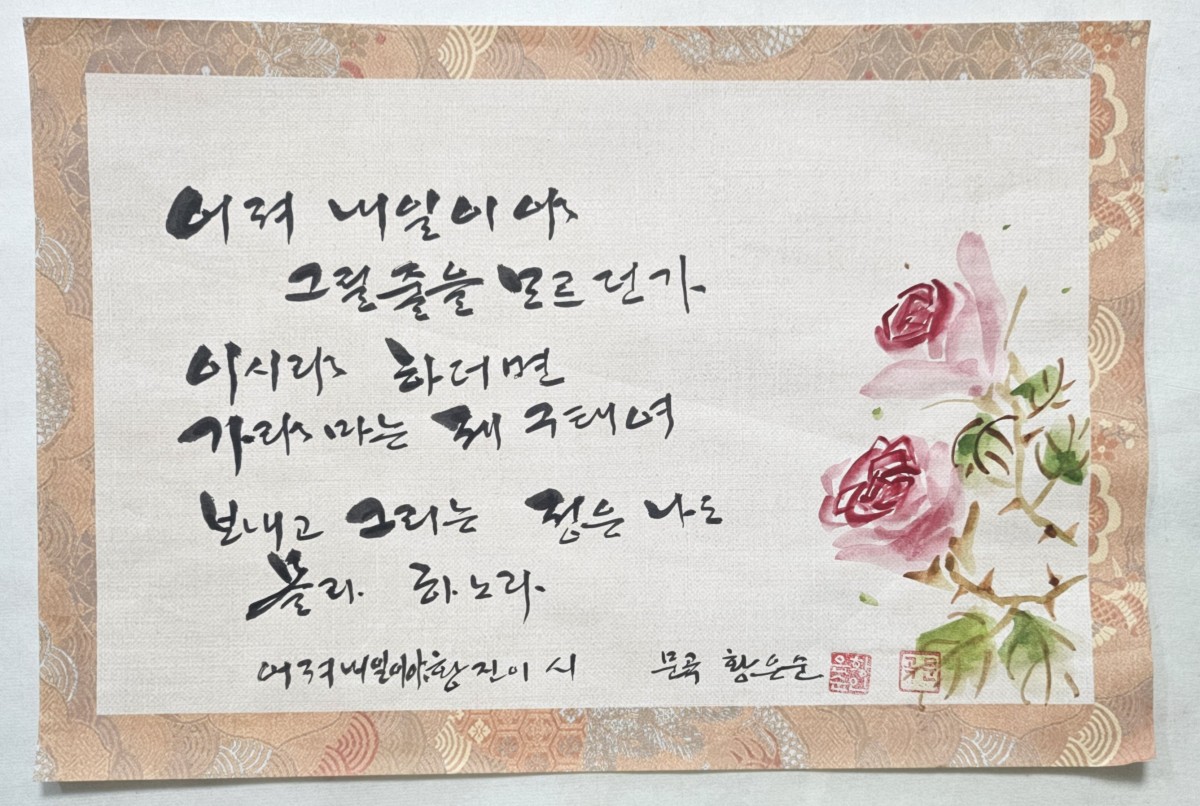 어져 내일이야
그릴줄을 모르던가
이시랴 하더면
가랴마는 제 구태여
보내고 그리는 정은 나도
몰라 하노라.
어져내일이야 황진이 시
문곡 황은순